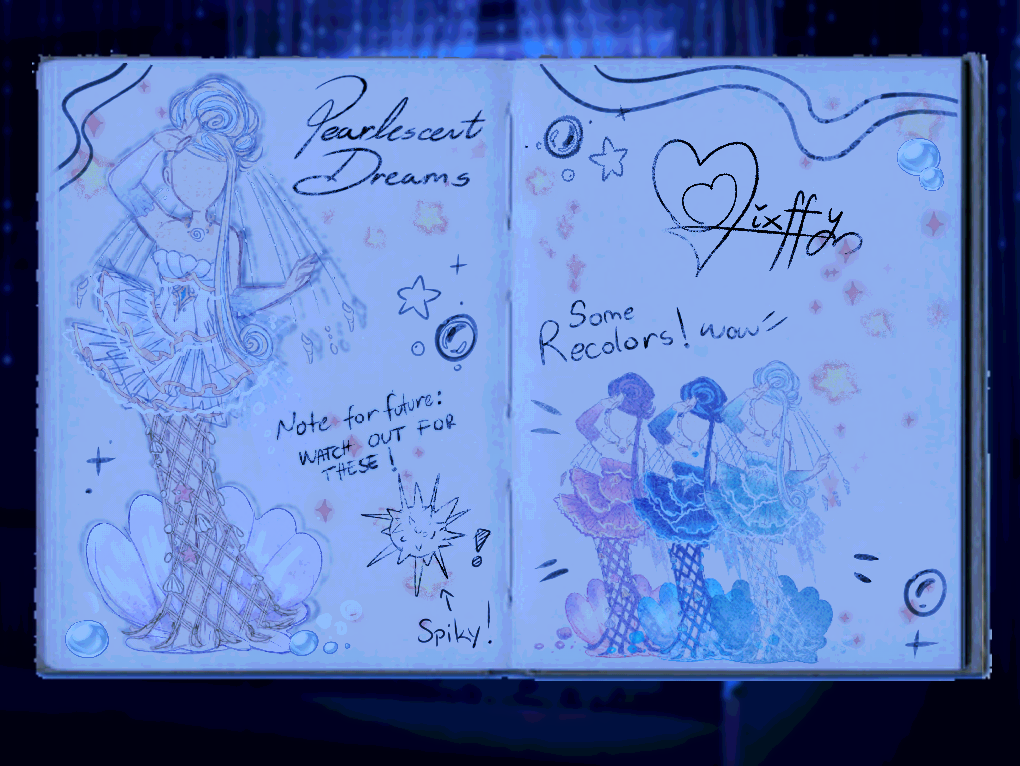 Pearlescent
Dreams
Note for future:
WATCH OUT FOR
THESE!
!
Spiky!
Some
Recolors! wow